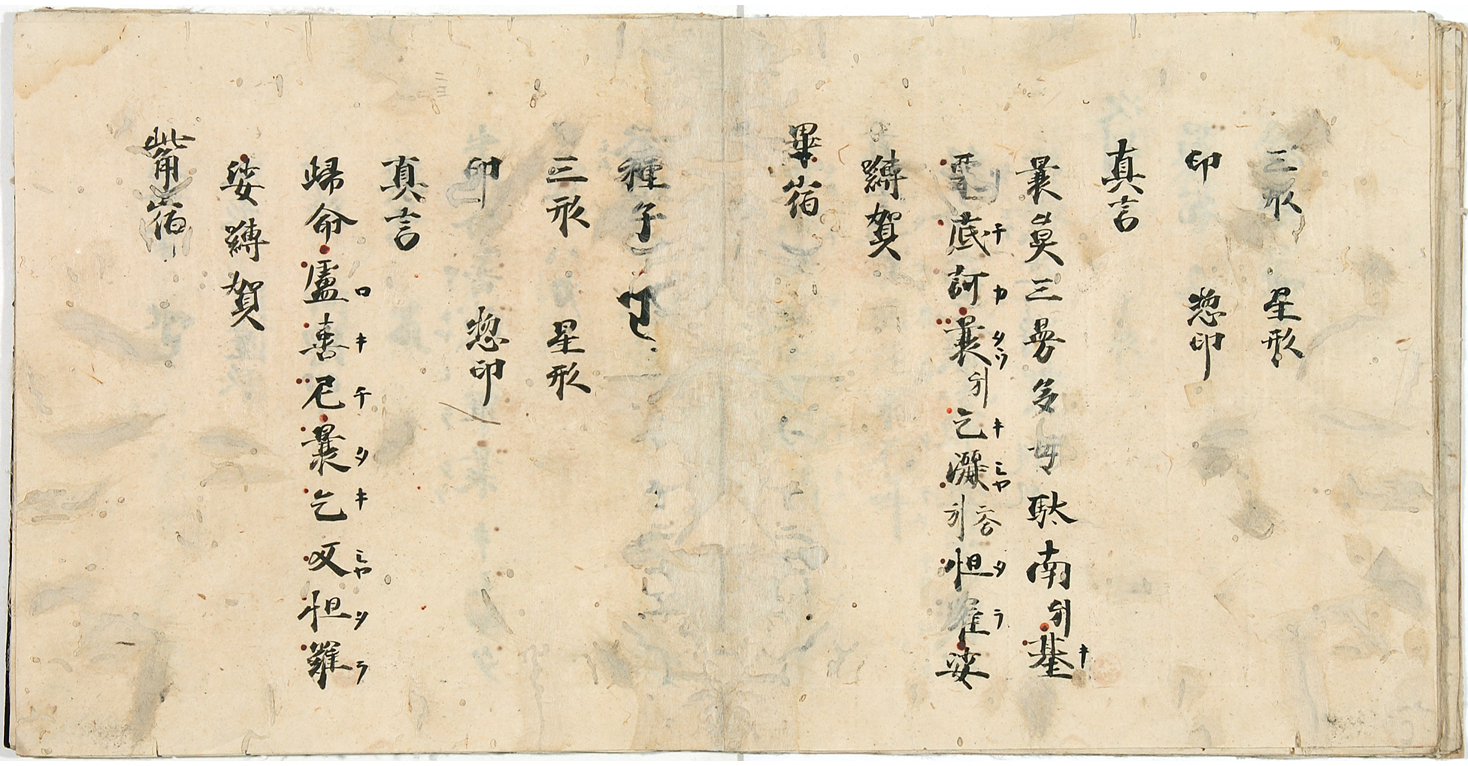 三形 星形
印 惣印
真言
曩莫三曼多母駄南引基
キ
底訶曩引乞灑引二合怛羅娑
チカタウキシヤタラ
嚩賀
畢宿
種子
三形 星形
印 惣印
真言
歸命盧喜尼曩乞叉怛羅
ロキチタキシヤタラ
娑嚩賀
觜宿